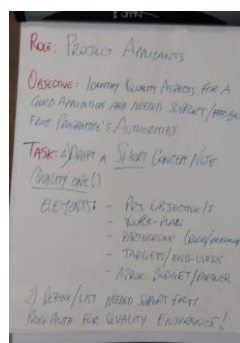 ROLE: PROJECT APPLICANTS
OBJECTIVE: IDENTIFY QUALITY ASPECTS FOR A
GOOD APPLICATION AND NEEDED SUPPORT/
FROM PROGRAMME'S AUTHORITIES
TASK: 1) DRAFT A SHORT CONCEPT NOTE
(QUALITY ONE!)
ELEMENTS: - PROJ OBJECTIVE/S
- WORK-PLAN
- PARTNERSHIP
- TARGETS/END-USERS
- APROX. BUDGET/PARTNER
2) DEFINE/LIST NEEDED SUPPORT FROM
PROG. AUTH. FOR QUALITY ENSURANCE!